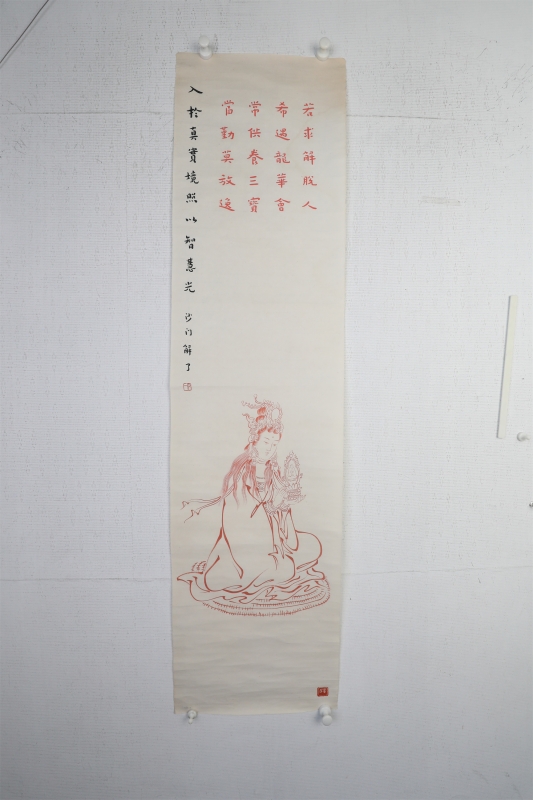 若求解脫人
希遇龍華會
常供養三寶
當勤莫放逸
入於真實境照以智慧光 沙門解了